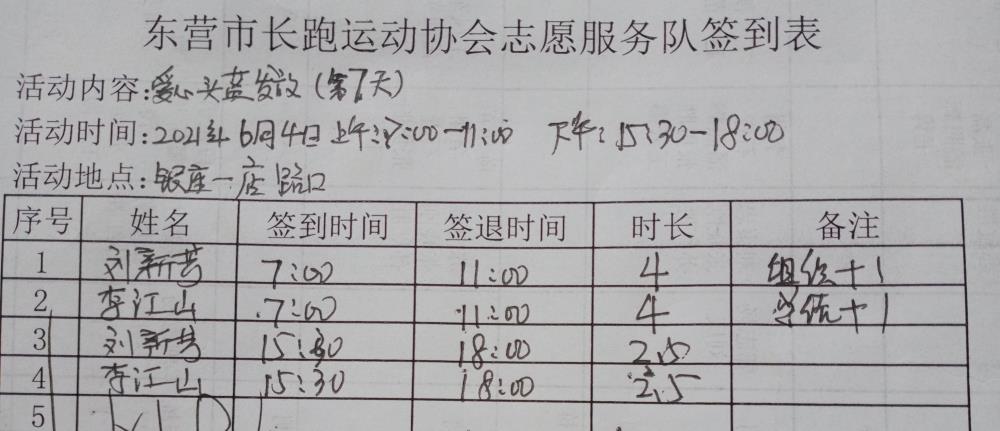 东营市长跑运动协会志愿服务队签到表
活动内容:爱心头盔发放(第7天)
活动时间:2021年6月4日上午:7:00-11:00 下午:15:30-18:00
活动地点:银座一店路口
序号 姓名 签到时间 签退时间 时长 备注
1 刘新芸 7:00 11:00 4 组织+1
2 李江山 7:00 11:00 4 +1
3 刘新芸 15:30 18:00 2.5
4 李江山 15:30 18:00 2.5
5